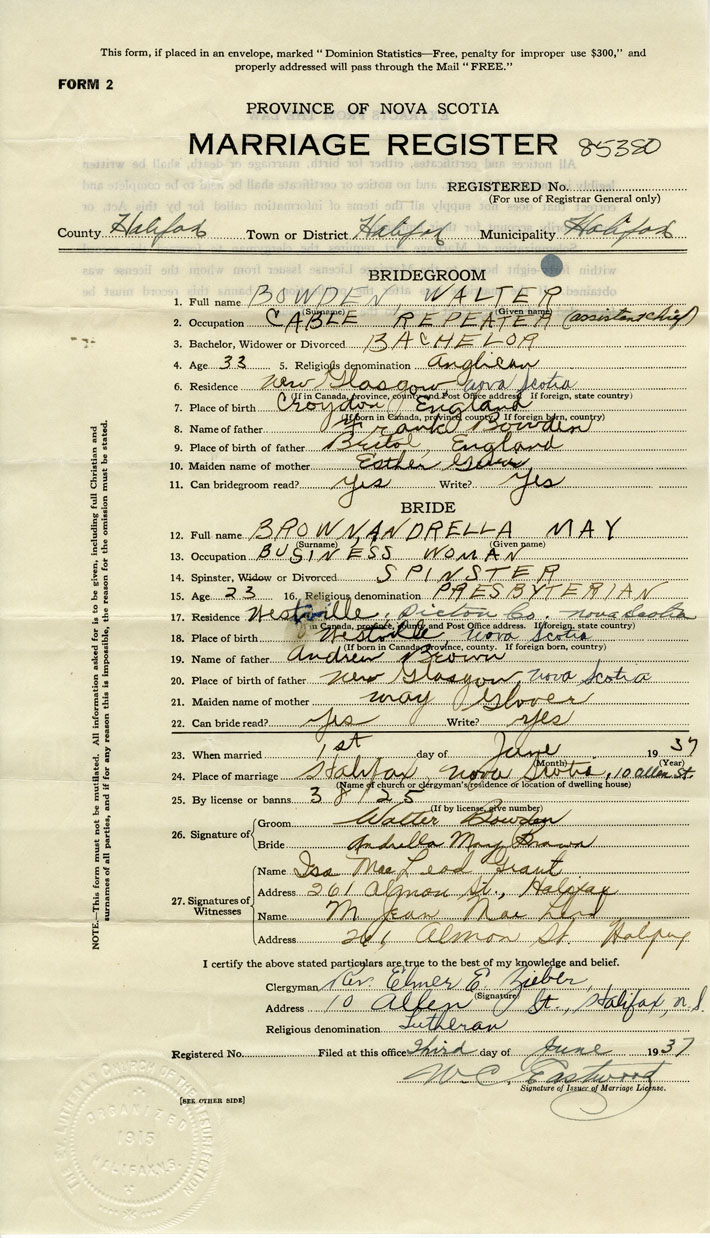 This form, if placed in an envelope, marked "Dominion Statistics—Free, penalty for improper use $300," and
properly addressed will pass through the Mail "FREE."
FORM 2
PROVINCE OF NOVA SCOTIA
MARRIAGE REGISTER 85380
REGISTERED No.
(For use of Registrar General only)
County Halifax Town or District Halifax Municipality Halifax
BRIDEGROOM
1. Full name BOWDEN, WALTER
(Surname) (Given name)
2. Occupation CABLE REPEATER (assistant chief)
3. Bachelor, Widower or Divorced BACHELOR
4. Age 33 5. Religious denomination Anglican
6. Residence New Glasgow Nova Scotia
(If in Canada, province, county and Post Office address. If foreign, state country)
7. Place of birth Croydon, England
(If born in Canada, province, county. If foreign born, country)
8. Name of father Frank Bowden
9. Place of birth of father Bristol, England
10. Maiden name of mother Esther
11. Can bridegroom read? Yes Write? Yes
BRIDE
12. Full name BROWN, ANDRELLA MAY
(Surname) (Given name)
13. Occupation BUSINESS WOMAN
14. Spinster, Widow or Divorced SPINSTER
15. Age 23 16. Religious denomination PRESBYTERIAN
17. Residence Westville, Pictou Co. Nova Scotia
in Canada, province, county, and Post Office address. If foreign, state country)
18. Place of birth Westville, Nova Scotia
(If born in Canada, province, county. If foreign born, country)
19. Name of father Andrew Brown
20. Place of birth of father New Glasgow, Nova Scotia
21. Maiden name of mother May Glover
22. Can bride read? Yes Write? Yes
23. When married 1st day of June 1937
(Month) (Year)
24. Place of marriage Halifax, Nova Scotia, 10 Allen St.
(Name of church or clergyman's residence or location of dwelling house)
25. By license or banns 38125
(If by license, give number)
26. Signature of Groom Walter Bowden
Bride Andrella May Brown
27. Signatures of Witnesses
Name Isa MacLeod Grant
Address 261 Almon St., Halifax
Name M. Jean MacLeod
Address 261 Almon St. Halifax
I certify the above stated particulars are true to the best of my knowledge and belief.
Clergyman Rev. Elmer E. Zieber,
(Signature)
Address 10 Allen St., Halifax, N.S.
Religious denomination Lutheran
Registered No. Filed at this office Third day of June 1937
W.C. Eastwood
Signature of Issuer of Marriage License.
[SEE OTHER SIDE]
NOTE.—This form must not be mutilated. All information asked for is to be given, including full Christian and
surnames of all parties, and if for any reason this is impossible, the reason for the omission must be stated.
CHURCH OF THE RESURRECTION
ORGANIZED
1915
HALIFAX N.S.